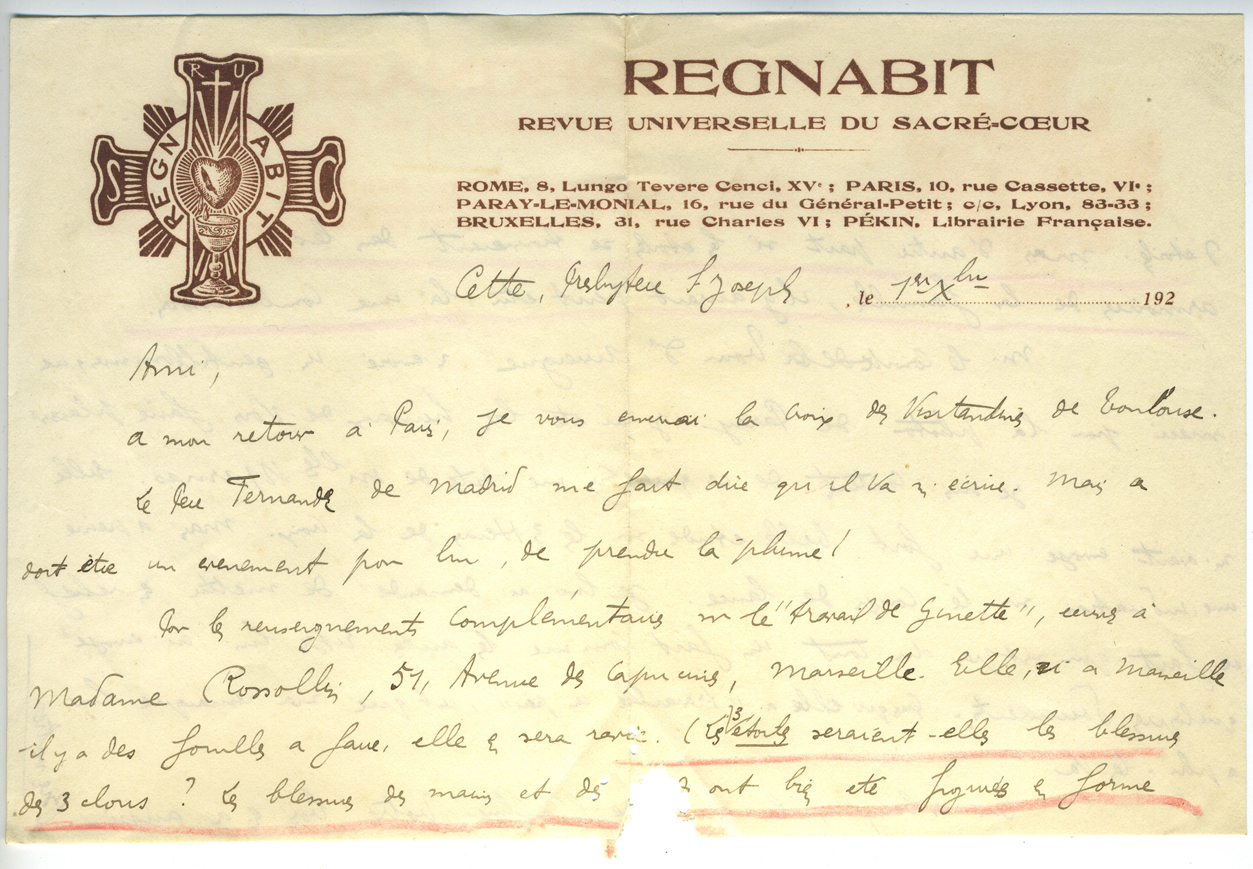 R U
S REGNABIT C
REGNABIT
REVUE UNIVERSELLE DU SACRÉ-CŒUR
ROME, 8, Lungo Tevere Cenci, XVe ; PARIS, 10, rue Cassette, VIe ;
PARAY-LE-MONIAL, 16, rue du Général-Petit ; c/c, Lyon, 83-33 ;
BRUXELLES, 31, rue Charles VI ; PÉKIN, Librairie Française.
Cette, Presbytère St Joseph , le 1er Xbre 192
Ami,
a mon retour à Paris, je vous enverrai la croix des Visitandines de Toulouse.
Le Père Fernandez de Madrid me fait dire qu'il va écrire. Mais ça
doit être un evenement pour lui, de prendre la plume !
Pour les renseignements complémentaires sur le "travail de Ginette", écrivez à
Madame Rossollin, 51, Avenue des Capucins, Marseille. Elle, si a Marseille
il y a des fouilles a faire, elle en sera ravie. (Les 3 étoiles seraient-elles les blessures
des 3 clous ? Les blessures des mains et des ont bien été figurées en forme